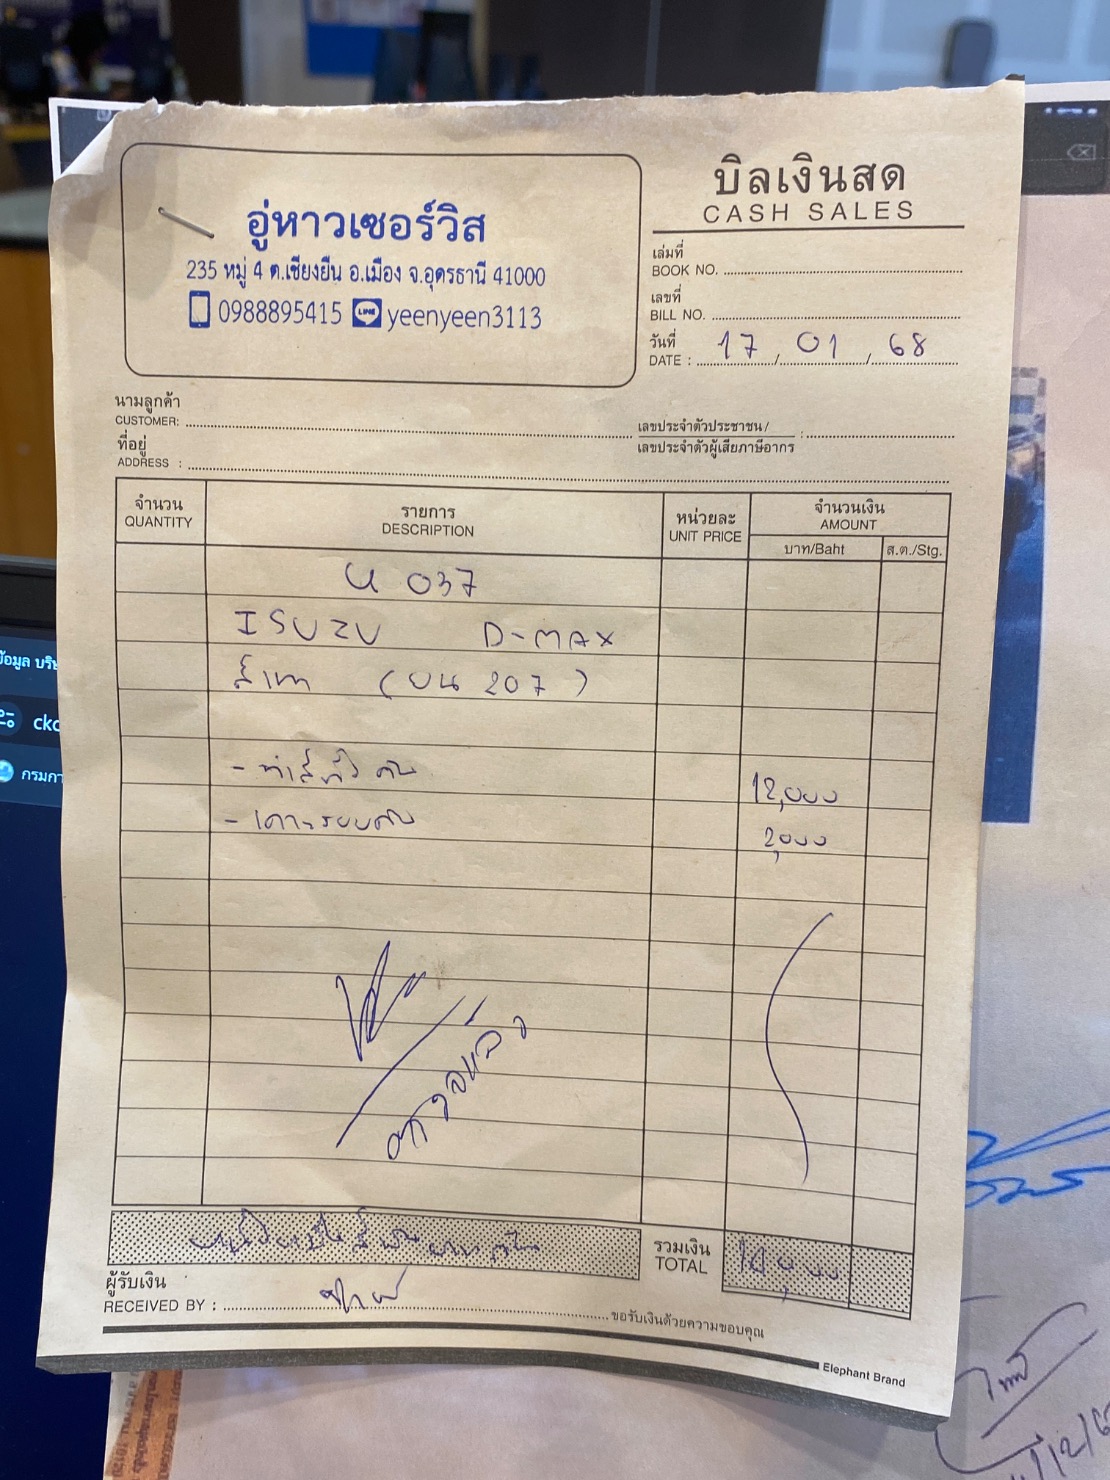 บิลเงินสด
CASH SALES
อู่หาวเซอร์วิส
235 หมู่ 4 ต.เชียงยืน อ.เมือง จ.อุดรธานี 41000
0988895415 LINE yeenyeen3113
เล่มที่
BOOK NO.
เลขที่
BILL NO.
วันที่
DATE : 17 / 01 / 68
นามลูกค้า
CUSTOMER:
เลขประจำตัวประชาชน /
เลขประจำตัวผู้เสียภาษีอากร :
ที่อยู่
ADDRESS :
จำนวน รายการ หน่วยละ จำนวนเงิน
QUANTITY DESCRIPTION UNIT PRICE AMOUNT
บาท/Baht ส.ต./Stg.
037
ISUZU D-MAX
สีเทา (ขน 207)
- ทำสีทั้งคัน 12,000
- เคาะรอบคัน 2,000
ตรวจแล้ว
หนึ่งหมื่นสี่พันบาทถ้วน
รวมเงิน
TOTAL 14,000
ผู้รับเงิน
RECEIVED BY :
ขอรับเงินด้วยความขอบคุณ
Elephant Brand
ckc